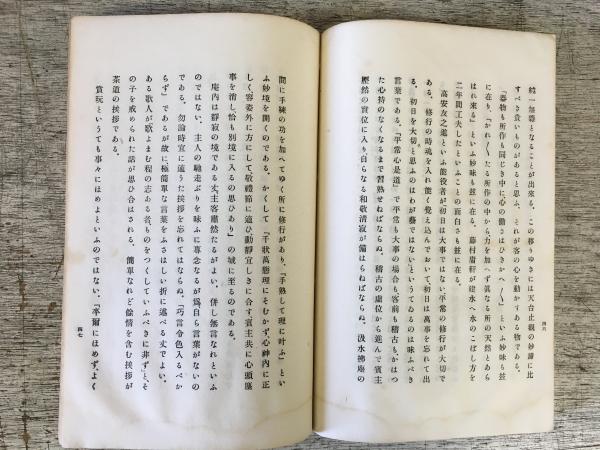 純一無雜となることが出來る。この移りゆきには天台止觀の妙諦に比
すべき貴いものがあると思ふ、それが客の心を動かす力である。
「器物も所作も同じき中に心の働きはひきかへ〳〵」といふ妙味も茲
に在り、「かれ〳〵たる所作の中から、力を加へず異なる所の天然とあら
はれ來る」といふ妙味も茲に在る。藤村庸軒が建水へ水のこぼし方を
二年間工夫したといふことの面白さも茲に在る。
高安友之進といふ能役者が、初日は大事ではない、平常の修行が大切で
ある。修行の時魂を入れ能く覺え込んでおいて、初日は萬事を忘れて出
る。初日を大切と思ふのはわが藝ではないというてゐるのは味ふべき
言葉である。「平常心是道」で平常も大事の場合も、客前も稽古もかはつ
た心持のなくなるまで習熟せねばならぬ。稽古の虛位から進んで賓主
歷然の實位に入り、自らなる和敬清寂が備はらねばならぬ。淺水拂底の
四六
間に手練の功を加へてゆく所に修行があり、「手熟して理に叶ふ」とい
ふ妙境を開くのである。かくして「千狀萬態理にそむかず、心神內に正
しく容姿外に方にして敬禮節に適ひ、動靜宜しきに合す、賓主共に心頭塵
事を消し、恰も別境に入るの思ひあり」の域に至るのである。
庵內は靜寂の境である丈、主客肅然たるがよい。併し無言なれといふ
のではない。主人の馳走ぶりを味ふに專念なるが爲自ら言葉がないの
である。勿論時宜に適うた挨拶を忘れてはならぬ。「巧言令色入るべか
らず」であるが故に、極簡單な言葉をふさはしい折に述べる丈でよい。
ある歌人が「歌よまむ程の志ある者、ものをつくしていふべきに非ず」と、そ
の子を戒められた話が思ひ合はされる。簡單なれど餘情を含む挨拶が
茶道の挨拶である。
賞玩というても事々にほめよといふのではない。「卒爾にほめず、よく
四七